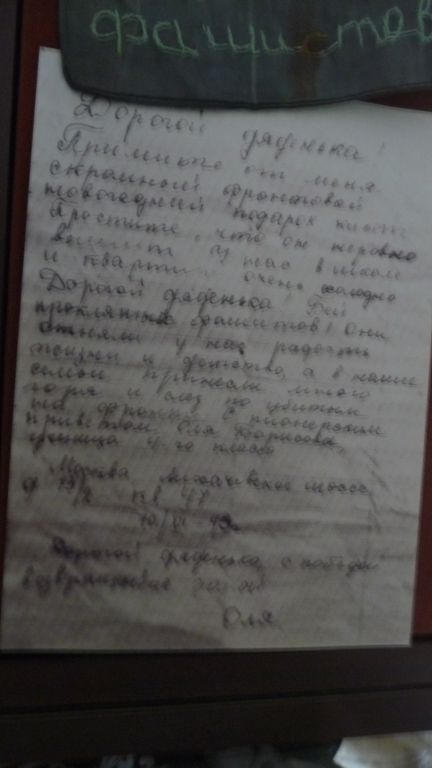 фашистов
Дорогой дяденька!
Примите от меня
скромный фронтовой
новогодний подарок кисет
Простите, что он неровно
вышит у нас в школе
и квартире очень холодно
Дорогой дяденька! Бей
проклятых фашистов! Они
отняли у нас радость
жизни и детства, а в наши
семьи принесли много
горя и слез по убитым
на фронтах. С пионерским
приветом Оля Борисова,
ученица 4-го класса
Москва, Можайское шоссе
д кв 47
Дорогой дяденька, с победой
возвращайся
Оля